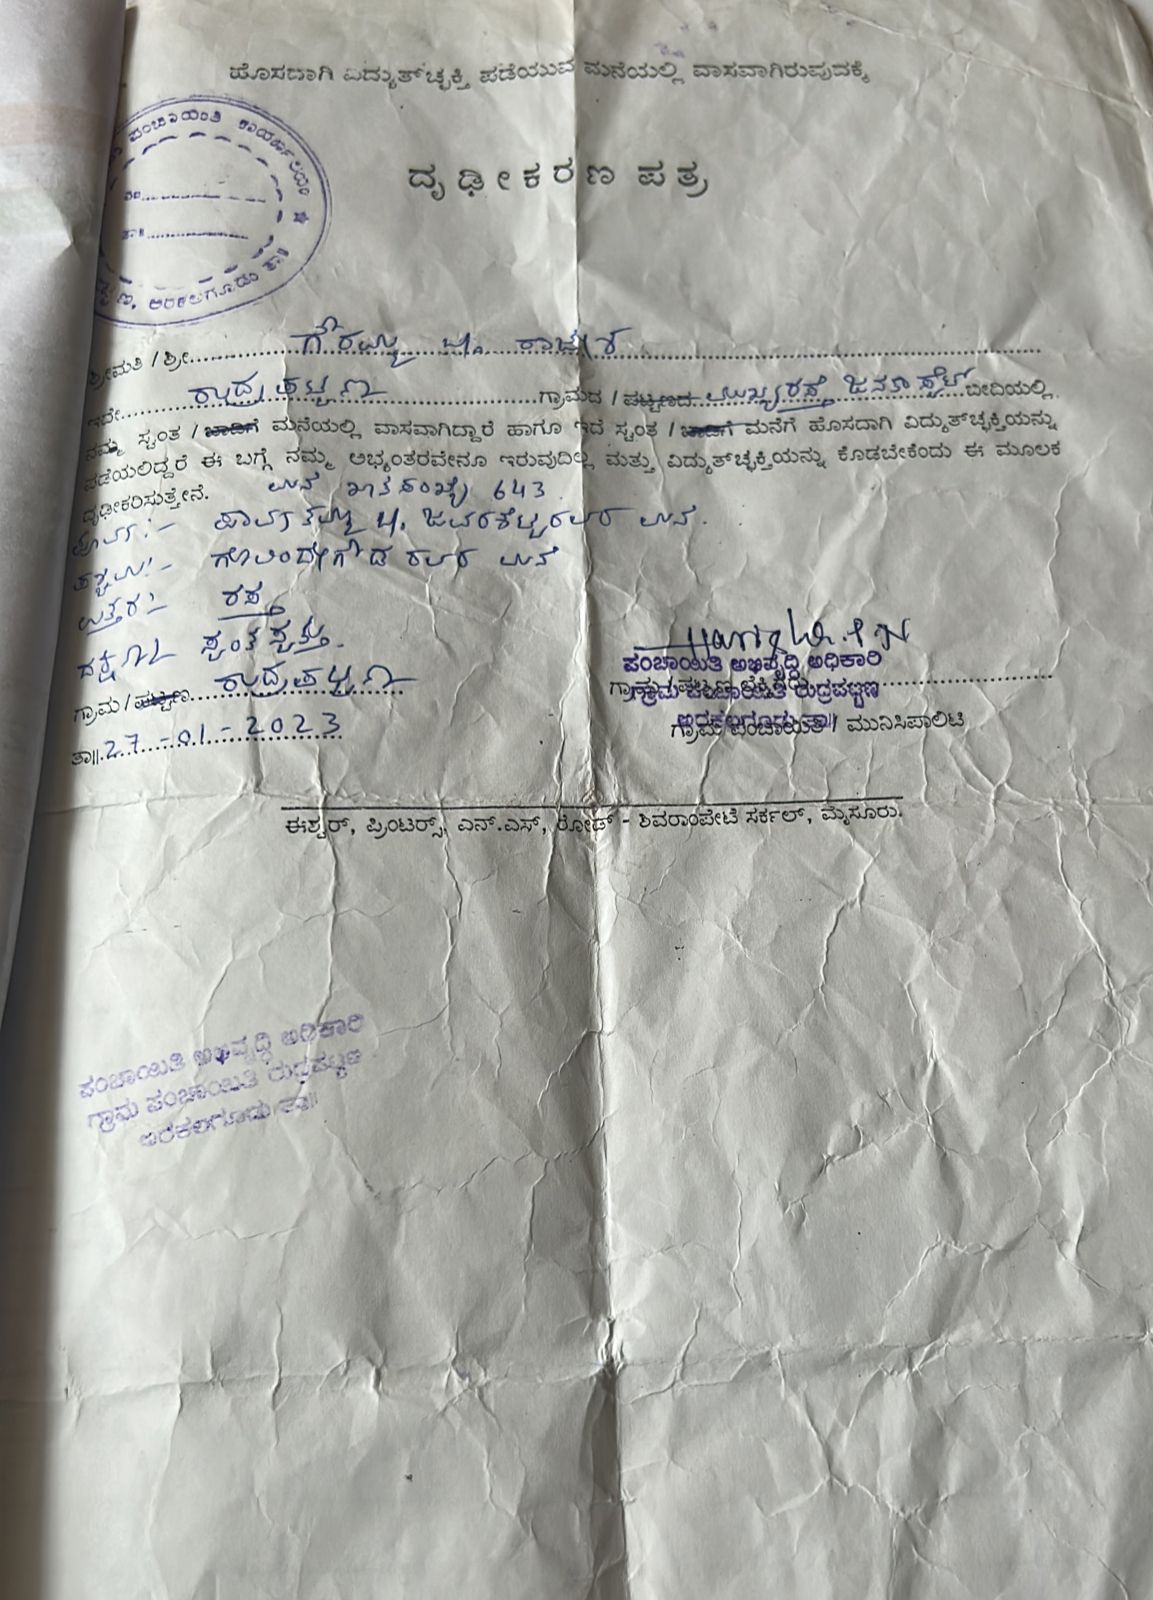 ಹೊಸದಾಗಿ ವಿದ್ಯುತ್‌ಚ್ಛಕ್ತಿ ಪಡೆಯುವ ಮನೆಯಲ್ಲಿ ವಾಸವಾಗಿರುವುದಕ್ಕೆ
ಪಂಚಾಯಿತಿ ಕಾರ್ಯಾಲಯ
ದೃಢೀಕರಣ ಪತ್ರ
ನಂ.
ತಾ॥
ಅರಕಲಗೂಡು ತಾ॥
ಶ್ರೀಮತಿ / ಶ್ರೀ ಗೌರಮ್ಮ
ಇದೇ ರುದ್ರಪಟ್ಟಣ ಗ್ರಾಮದ / ಪಟ್ಟಣದ ಮುಖ್ಯರಸ್ತೆ ಬೀದಿಯಲ್ಲಿ
ನಮ್ಮ ಸ್ವಂತ / ಬಾಡಿಗೆ ಮನೆಯಲ್ಲಿ ವಾಸವಾಗಿದ್ದಾರೆ ಹಾಗೂ ಇದೆ ಸ್ವಂತ / ಬಾಡಿಗೆ ಮನೆಗೆ ಹೊಸದಾಗಿ ವಿದ್ಯುತ್‌ಚ್ಛಕ್ತಿಯನ್ನು
ಪಡೆಯಲಿದ್ದರೆ ಈ ಬಗ್ಗೆ ನಮ್ಮ ಅಭ್ಯಂತರವೇನೂ ಇರುವುದಿಲ್ಲ ಮತ್ತು ವಿದ್ಯುತ್‌ಚ್ಛಕ್ತಿಯನ್ನು ಕೊಡಬೇಕೆಂದು ಈ ಮೂಲಕ
ದೃಢೀಕರಿಸುತ್ತೇನೆ. ಮನೆ ಖಾತೆ ಸಂಖ್ಯೆ 643.
ಪೂರ್ವ :- ಮನೆ.
ಪಶ್ಚಿಮ :- ಗೋವಿಂದೇಗೌಡ ರವರ ಮನೆ
ಉತ್ತರ :- ರಸ್ತೆ
ದಕ್ಷಿಣ ಸ್ವಂತ ಸ್ವತ್ತು.
ಗ್ರಾಮ / ಪಟ್ಟಣ ರುದ್ರಪಟ್ಟಣ
ತಾ॥ 27-01-2023
ಪಂಚಾಯಿತಿ ಅಭಿವೃದ್ಧಿ ಅಧಿಕಾರಿ
ಗ್ರಾಮ ಪಂಚಾಯಿತಿ ರುದ್ರಪಟ್ಟಣ
ಅರಕಲಗೂಡು ತಾ॥
ಗ್ರಾಮ ಪಂಚಾಯಿತಿ / ಮುನಿಸಿಪಾಲಿಟಿ
ಈಶ್ವರ್, ಪ್ರಿಂಟರ್ಸ್, ಎನ್.ಎಸ್, ರೋಡ್ - ಶಿವರಾಂಪೇಟೆ ಸರ್ಕಲ್, ಮೈಸೂರು.
ಪಂಚಾಯಿತಿ ಅಭಿವೃದ್ಧಿ ಅಧಿಕಾರಿ
ಗ್ರಾಮ ಪಂಚಾಯಿತಿ ರುದ್ರಪಟ್ಟಣ
ಅರಕಲಗೂಡು ತಾ॥